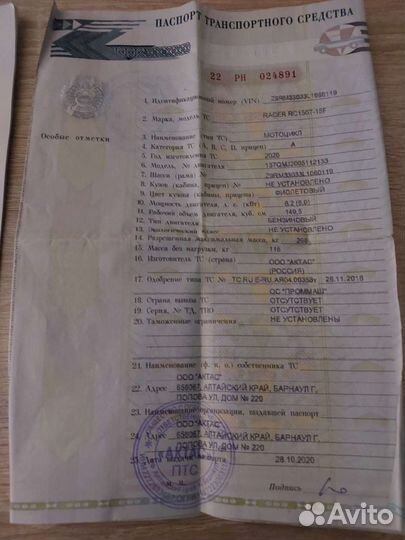 ПАСПОРТ ТРАНСПОРТНОГО СРЕДСТВА
22 РН 024891
Особые отметки
1. Идентификационный номер (VIN)
2. Марка, модель ТС RACER RC150T-15F
3. Наименование (тип ТС) МОТОЦИКЛ
4. Категория ТС (А, В, С, D, прицеп) А
5. Год изготовления ТС 2020
6. Модель, № двигателя
7. Шасси (рама) №
8. Кузов (кабина, прицеп) № НЕ УСТАНОВЛЕНО
9. Цвет кузова (кабины, прицепа) ФИОЛЕТОВЫЙ
10. Мощность двигателя, л. с. (кВт) 8.2 (6.0)
11. Рабочий объем двигателя, куб. см 149,5
12. Тип двигателя БЕНЗИНОВЫЙ
13. Экологический класс НЕ УСТАНОВЛЕНО
14. Разрешенная максимальная масса, кг
15. Масса без нагрузки, кг 116
16. Изготовитель ТС (страна) ООО "АКТАС"
(РОССИЯ)
17. Одобрение типа ТС № 26.11.2018
ОС "ПРОММАШ"
18. Страна вывоза ТС ОТСУТСТВУЕТ
19. Серия, № ТД, ТПО ОТСУТСТВУЕТ
20. Таможенные ограничения НЕ УСТАНОВЛЕНЫ
21. Наименование (ф. и. о.) собственника ТС
ООО "АКТАС"
22. Адрес 656067, АЛТАЙСКИЙ КРАЙ, БАРНАУЛ Г,
ПОПОВА УЛ, ДОМ № 220
23. Наименование организации, выдавшей паспорт
ООО "АКТАС"
24. Адрес 656067, АЛТАЙСКИЙ КРАЙ, БАРНАУЛ Г,
ПОПОВА УЛ, ДОМ № 220
25. Дата выдачи паспорта 28.10.2020
«АКТАС»
ПТС
М. П.
Подпись
Avito